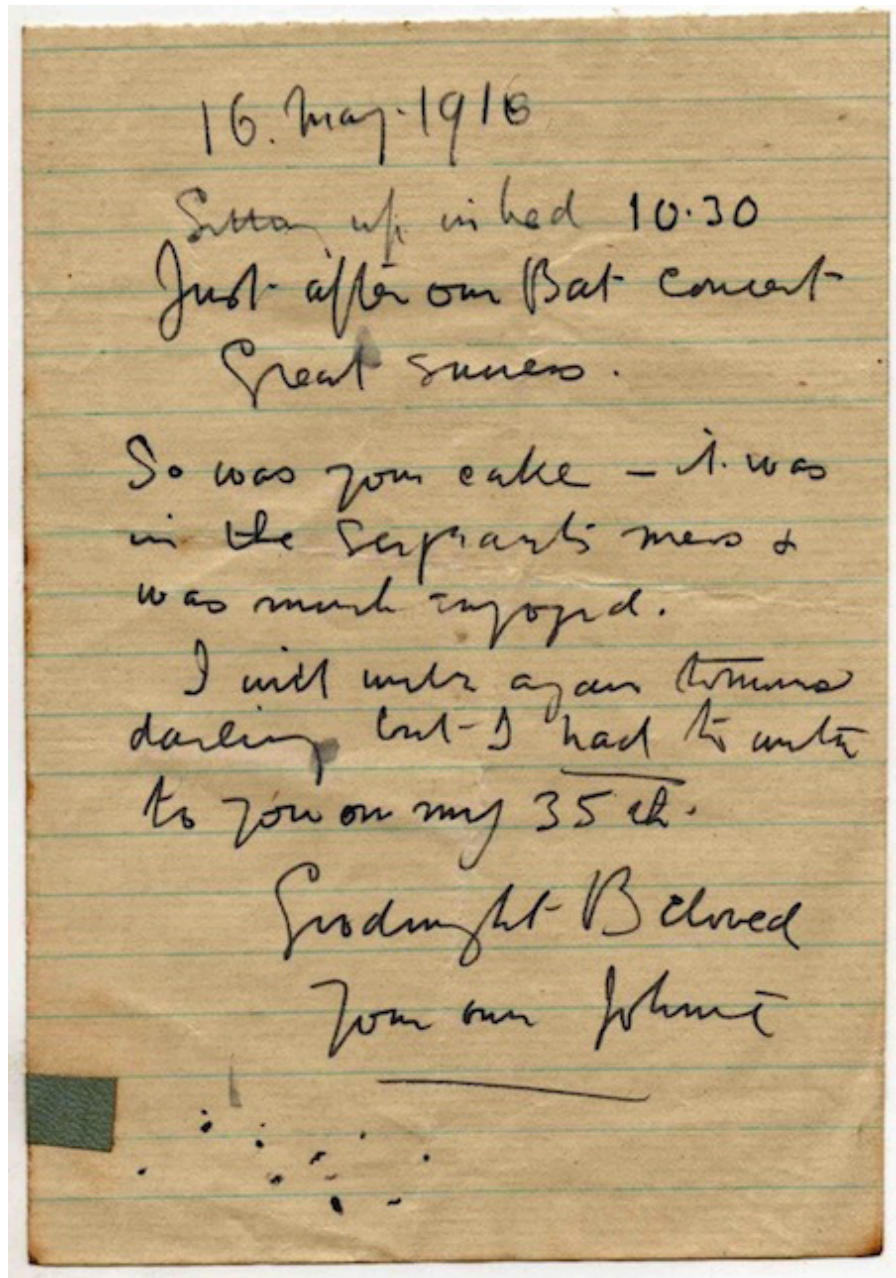 16. May. 1916
Sitting up in bed 10.30
Just after our Bat concert
Great success.
So was your cake – it was
in the sergeants mess &
was much enjoyed.
I will write again tomorrow
darling but I had to write
to you on my 35th.
Goodnight Beloved
Your own Johnie